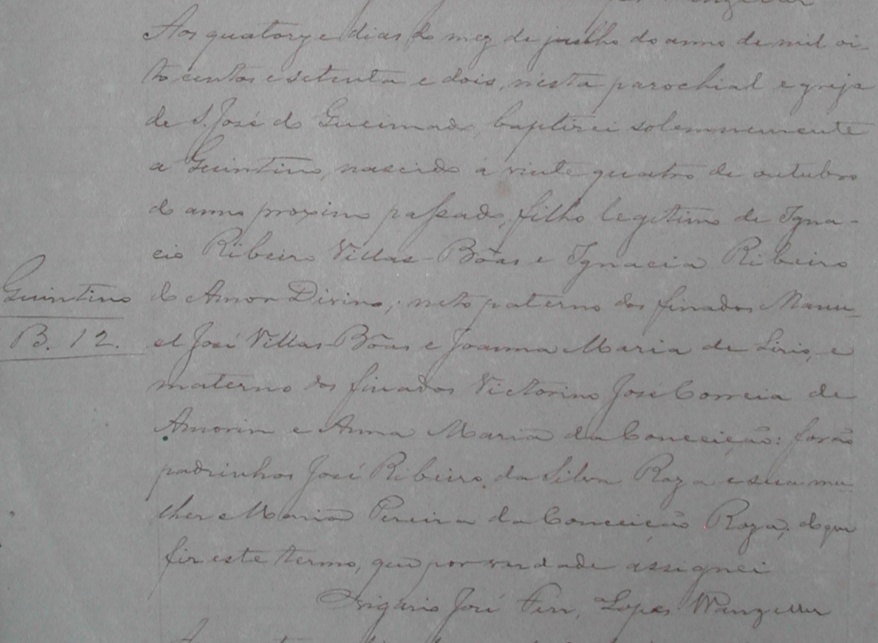 Aos quatorze dias do mez de julho do anno de mil oi-
to centos e setenta e dois, nesta parochial egreja
de S. José do Queimado, baptizei solemnemente
a Quintino, nascido a vinte quatro de outubro
do anno proximo passado, filho legitimo de Igna-
cio Ribeiro Villas-Bôas e Ignacia Ribeiro
do Amor Divino; neto paterno dos finados Manu-
el José Villas-Bôas e Joanna Maria de Siris, e
Quintino
B. 12.
materno dos finados Victorino José Correia de
Amorin e Anna Maria da Conceição: forão
padrinhos José Ribeiro da Silva Roza e sua mu-
lher Maria Pereira da Conceição Roza, do que
fiz este termo, que por verdade assignei
Vigario José Ferr. Lopes Wanzeller